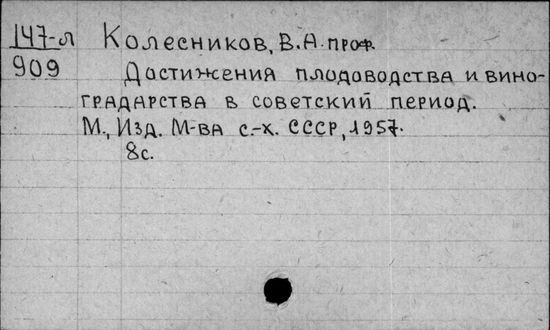 147-л Колесников, В.А. проф.
909 Достижения плодоводства и вино-
градарства в советский период.
М., Изд. М-ва с.-х. СССР, 1957.
8с.